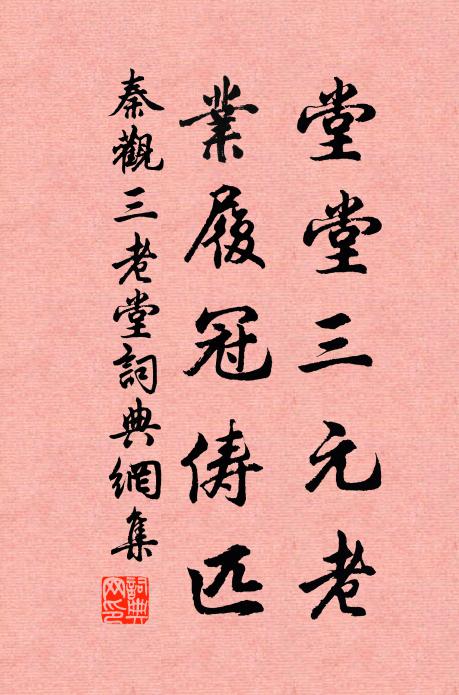 堂堂三元老
業履冠儔匹
秦觀三老堂詞典網集
詞典網印